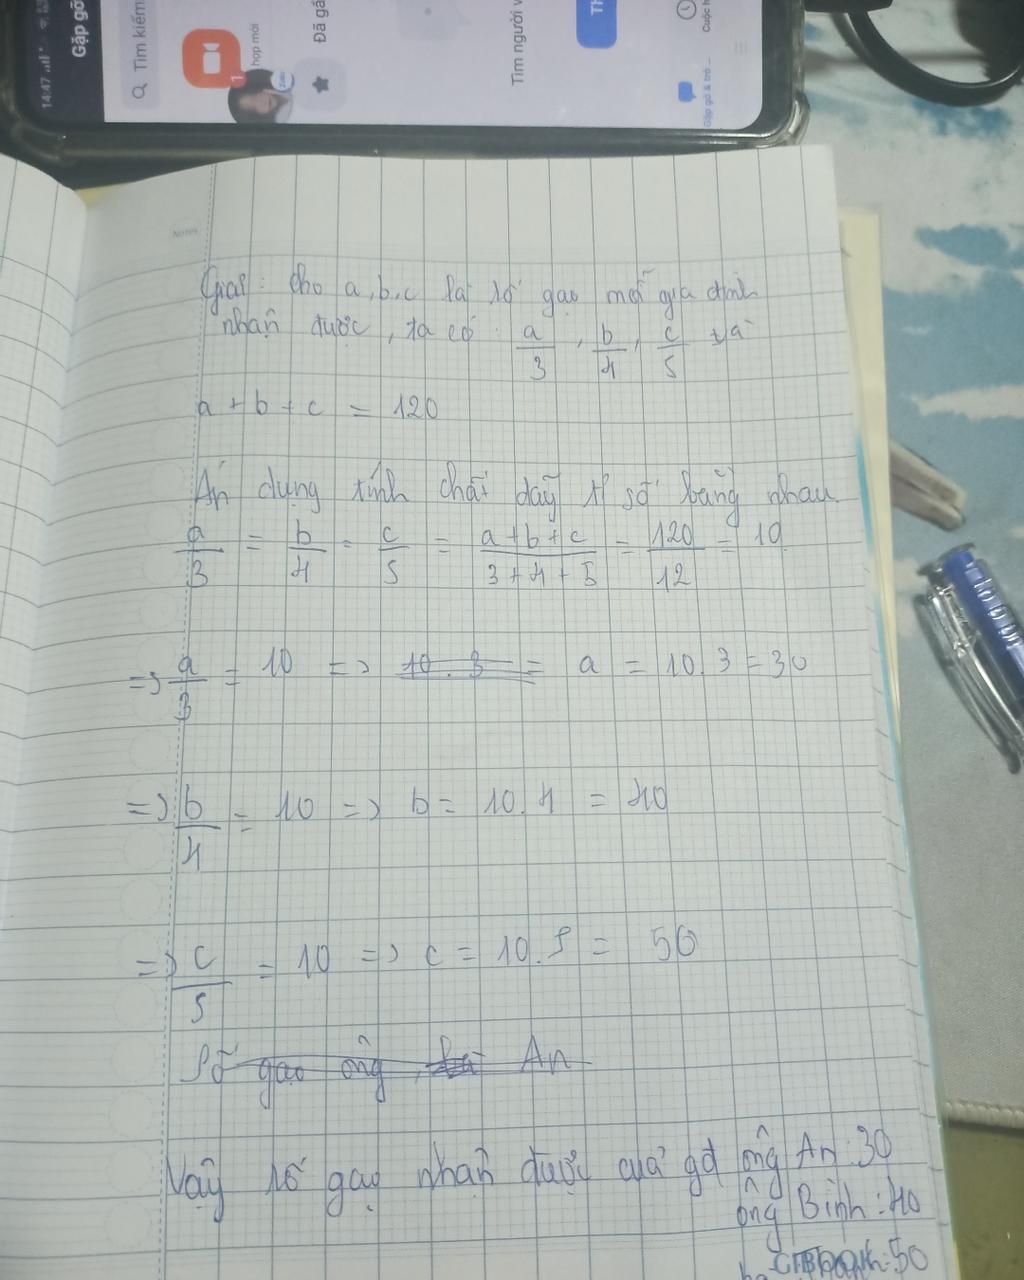 14:47
Gặp gỡ
Tìm kiếm
họp mới
1
Zalo
Đã gắ
Tìm người v
Th
Cuộc h
Gặp gỡ & trò ...
Notes
Giải: Cho a, b, c là số gạo mỗi gia đình
nhận được, ta có: a/3, b/4, c/5 và
a + b + c = 120
Áp dụng tính chất dãy tỉ số bằng nhau
a/3 = b/4 = c/5 = (a+b+c)/(3+4+5) = 120/12 = 10
=> a/3 = 10 => 10.3 = a = 10.3 = 30
=> b/4 = 10 => b = 10.4 = 40
=> c/5 = 10 => c = 10.5 = 50
Số gạo ông An
Vậy số gạo nhận được của gđ ông An: 30
ông Bình: 40
50